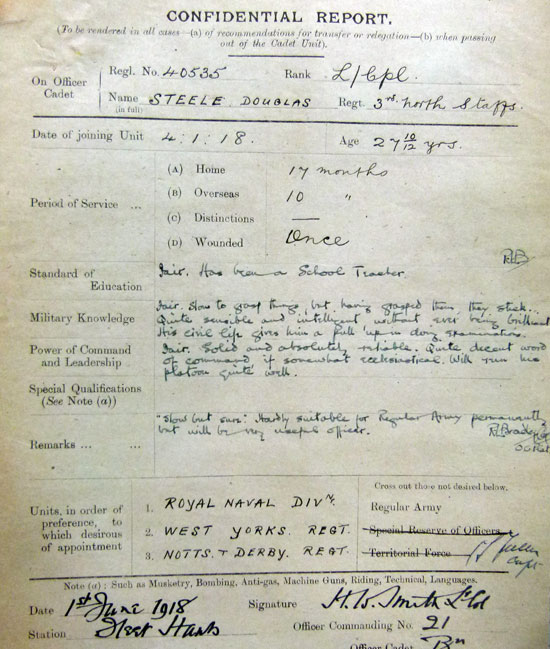 CONFIDENTIAL REPORT.
(To be rendered in all cases—(a) of recommendations for transfer or relegation—(b) when passing
out of the Cadet Unit).
On Officer
Cadet
Regl. No. 40535 Rank L/Cpl.
Name STEELE DOUGLAS Regt. 3rd North Staffs.
(in full)
Date of joining Unit 4.1.18. Age 27 10/12 yrs.
Period of Service ...
(A) Home 17 months
(B) Overseas 10 "
(C) Distinctions —
(D) Wounded Once
R.B
Standard of
Education
Fair. Has been a School Teacher
Military Knowledge
Fair. Slow to grasp things, but having grasped them they stick..
Quite sensible and intelligent without ever being brilliant
His civil life gives him a pull up in doing examinations
Power of Command
and Leadership
Fair. Solid and absolutely reliable. Quite decent word
of command if somewhat ecclesiastical. Will run his
platoon quite well.
Special Qualifications
(See Note (a))
Remarks ... ...
"Slow but sure." Hardly suitable for Regular Army permanently
but will be very useful officer.
Units, in order of
preference, to
which desirous
of appointment
1. ROYAL NAVAL DIVN.
2. WEST YORKS. REGT.
3. NOTTS. & DERBY. REGT.
Cross out those not desired below.
Regular Army
Special Reserve of Officers
Territorial Force
Note (a): Such as Musketry, Bombing, Anti-gas, Machine Guns, Riding, Technical, Languages.
Date 1st June 1918 Signature H. W. Smith Lt Col
Station Fleet Hants Officer Commanding No. 21
Officer Cadet Bn